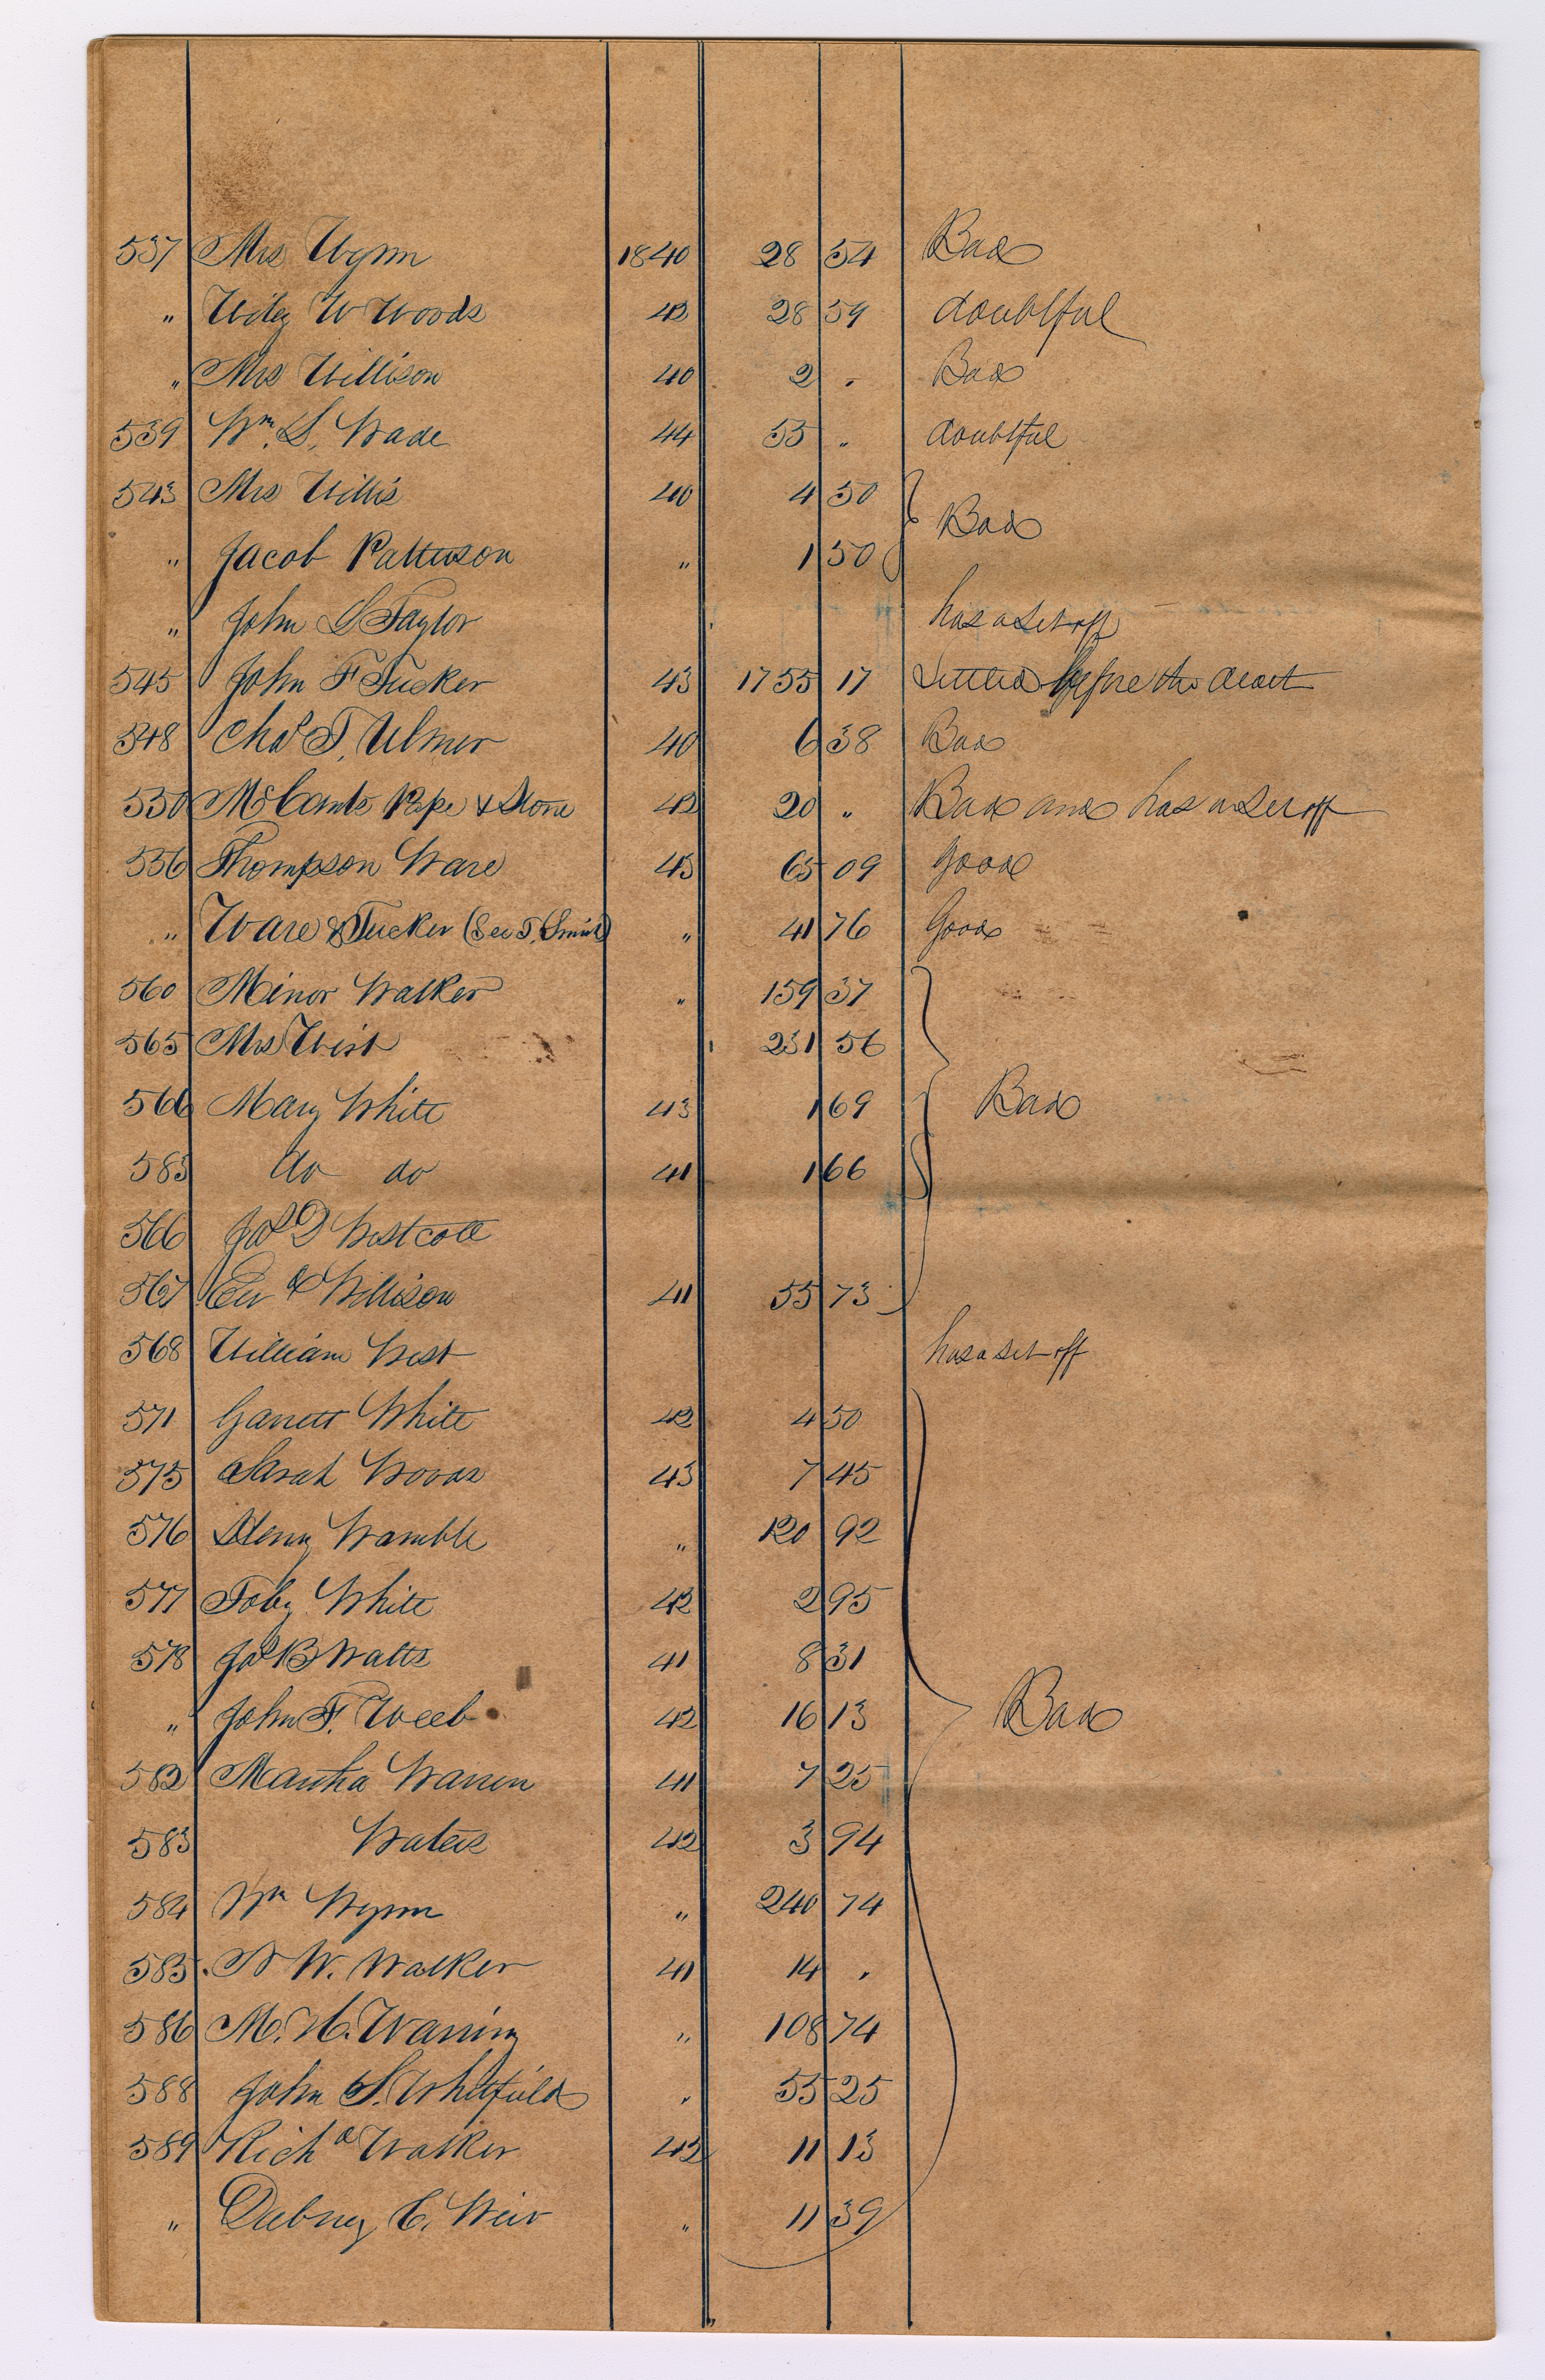 537 Mrs Wynn 1840 28 54 Bad
" Wiley W Woods 42 28 59 doubtful
" Mrs Willison 40 2 " Bad
539 Wm. S. Wade 44 55 " doubtful
543 Mrs Willis 40 4 50
Bad
" Jacob Patterson " 1 50
" John L Taylor has a set off
545 John F Tucker 43 1755 17 Settled before the
548 Chas T. Ulmer 40 6 38 Bad
550 McCants Pope & Stone 42 20 " Bad and has a set off
556 Thompson Ware 43 65 09 good
" Ware & Tucker (See T. Smith) " 41 76 Good
560 Minor Walker " 159 37
565 Mrs West 231 56
566 Mary White 43 1 69 Bad
583 do do 41 1 66
566 Jas D Westcott
567 Willison 41 55 73
568 William West has a set off
571 Garrett White 42 4 50
575 Sarah Woods 43 7 45
576 Henry Wamble " 120 92
577 Toby White 42 2 95
578 Jas B Watts 41 8 31
" John F. Weeb 42 16 13 Bad
582 Martha Warren 41 7 25
583 Waters 42 3 94
584 Wm Wynn " 240 74
585 W. Walker 41 14 "
586 M. H. Warring " 108 74
588 John S. Whitfield " 55 25
589 Richd Walker 42 11 13
" Dabney C. Weir " 11 39